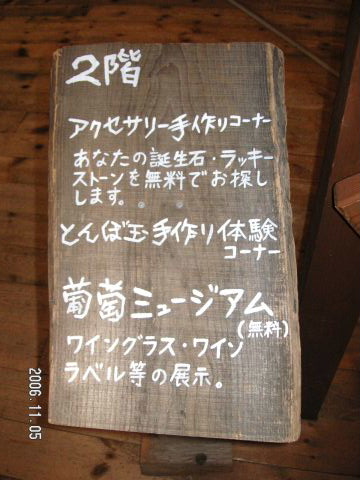 2階
アクセサリー手作りコーナー
あなたの誕生石・ラッキー
ストーンを無料でお探し
します。
とんぼ玉手作り体験
コーナー
葡萄ミュージアム
(無料)
ワイングラス・ワイン
ラベル等の展示。
2006.11.05